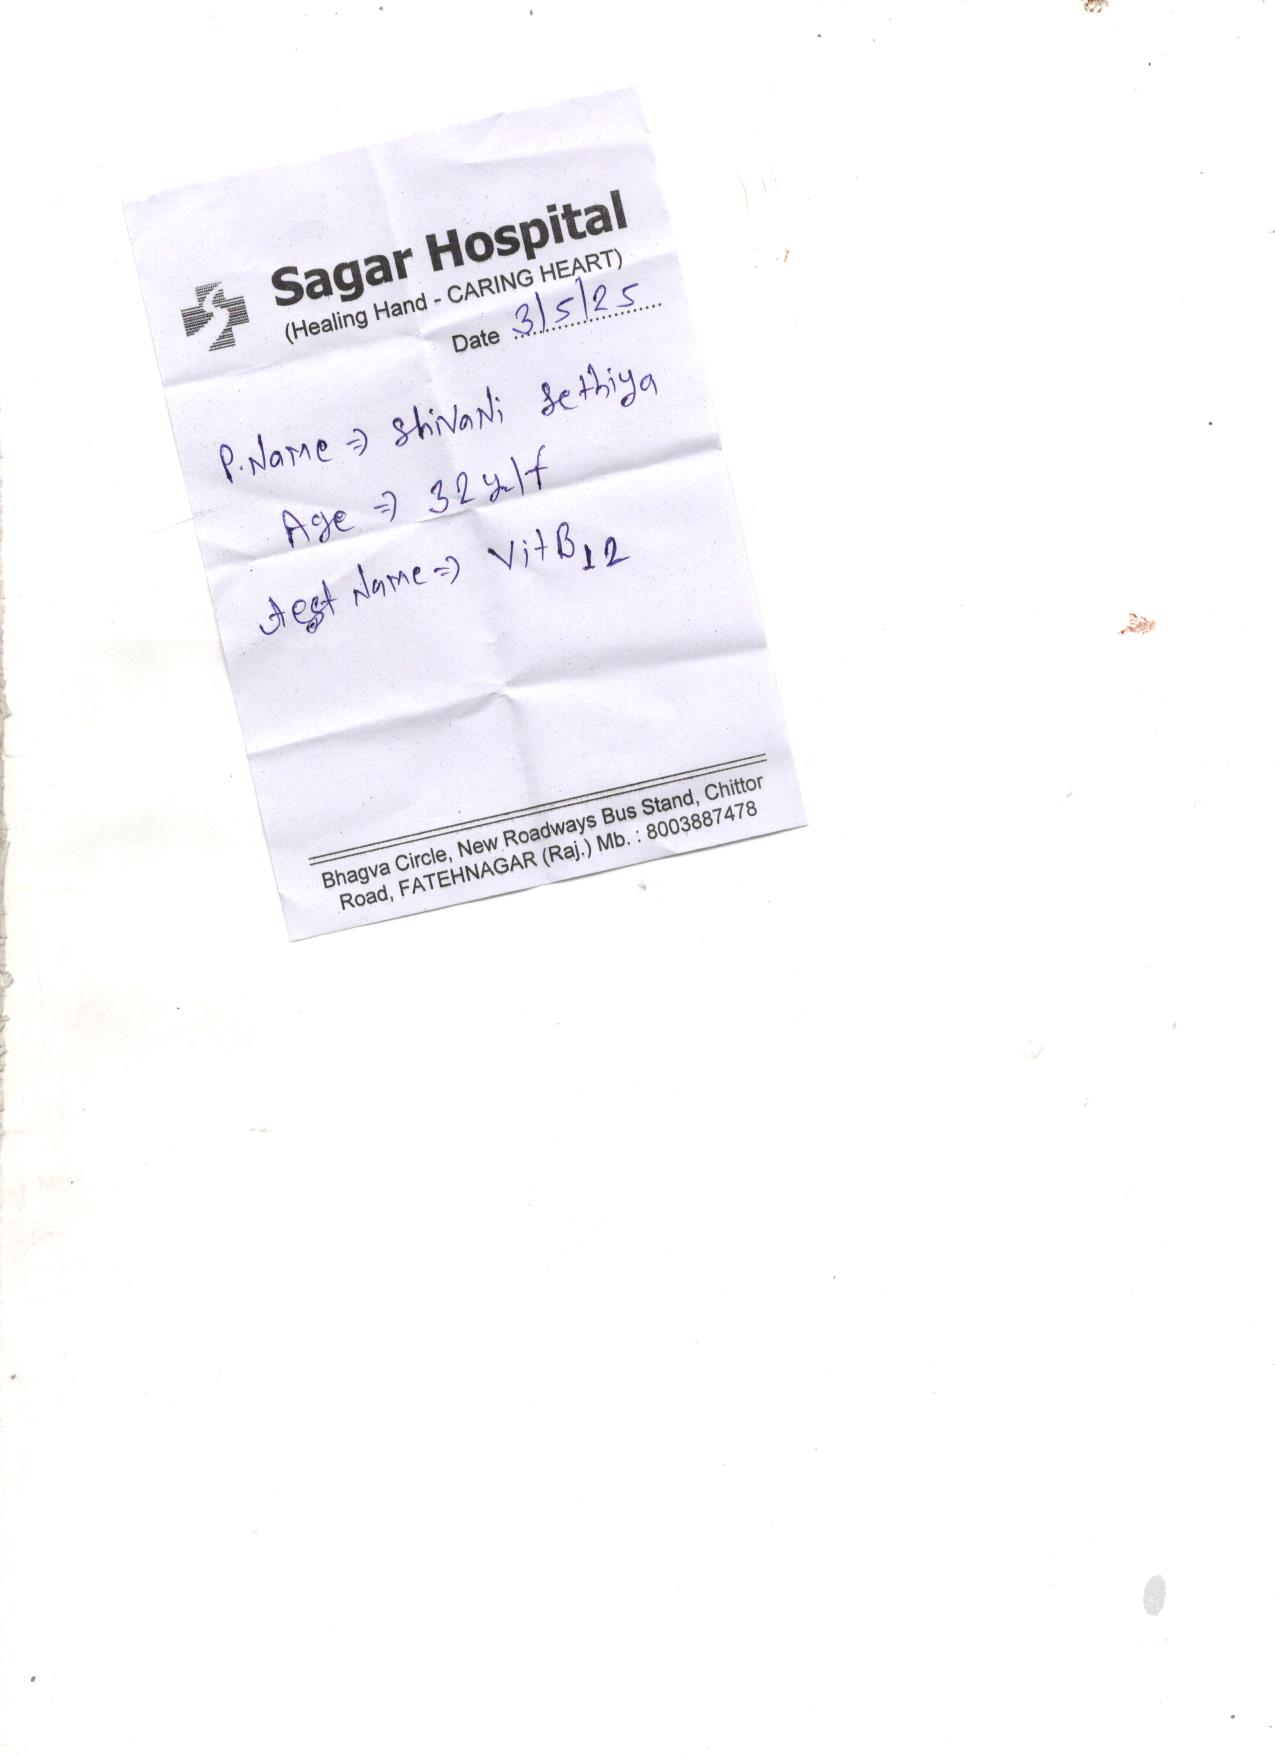 Sagar Hospital
(Healing Hand - CARING HEART)
Date 3/5/25
P. Name => Shivani Sethiya
Age => 32y/f
test Name => Vit B12
Bhagva Circle, New Roadways Bus Stand, Chittor
Road, FATEHNAGAR (Raj.) Mb. : 8003887478